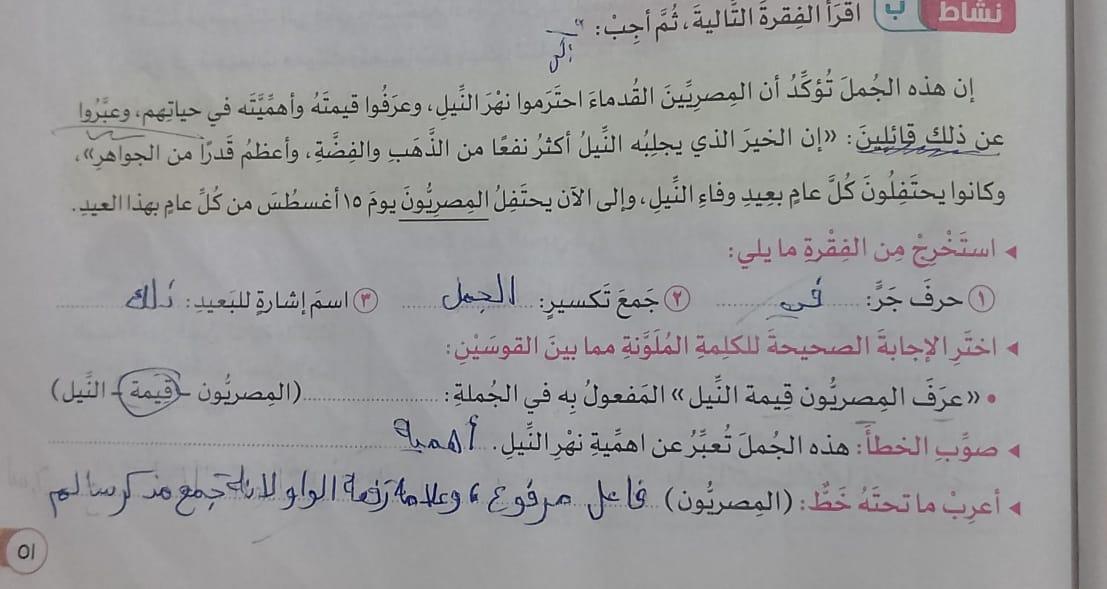 نشاط ب اقرَأ الفِقرةَ التَّاليةَ، ثُمَّ أجِبْ:
إن هذه الجُملَ تُؤكِّدُ أن المصريِّينَ القدماءَ احتَرموا نهْرَ النِّيلِ، وعرَفُوا قيمتَهُ وأهمِّيَّتَهُ في حياتِهِم، وعبَّرُوا
عن ذلك قائِلِينَ: «إن الخيرَ الذي يجلِبُه النِّيلُ أكثرُ نفعًا من الذَّهبِ والفِضَّةِ، وأعظمُ قَدْرًا من الجواهرِ»،
وكانوا يحتَفِلُونَ كُلَّ عامٍ بعِيدِ وفاءِ النِّيلِ، وإلى الآنَ يحتَفِلُ المِصريُّونَ يومَ ١٥ أغسطُسَ من كُلِّ عامٍ بهذا العيدِ.
◂ استَخْرِجْ مِن الفِقْرةِ ما يلي:
١ حرفَ جَرٍّ: في ٢ جَمعَ تَكسيرٍ: الجمل ٣ اسمَ إشارةٍ للبَعيدِ: ذلك
◂ اختَرِ الإجابةَ الصحيحةَ للكلمةِ المُلَوَّنةِ مما بينَ القوسَيْنِ:
• «عرَفَ المصريُّونَ قِيمةَ النِّيلِ» المَفعولُ به في الجُملةِ: (المصريُّون - قيمة - النِّيل)
◂ صوِّبِ الخطأَ: هذه الجُملُ تُعبِّرُ عن اهمِّيةِ نهْرِ النِّيلِ. أهمية
◂ أعرِبْ ما تحتَهُ خَطٌّ: (المِصريُّون) فاعل مرفوع، وعلامة رفعه الواو لانه جمع مذكر سالم
٥١